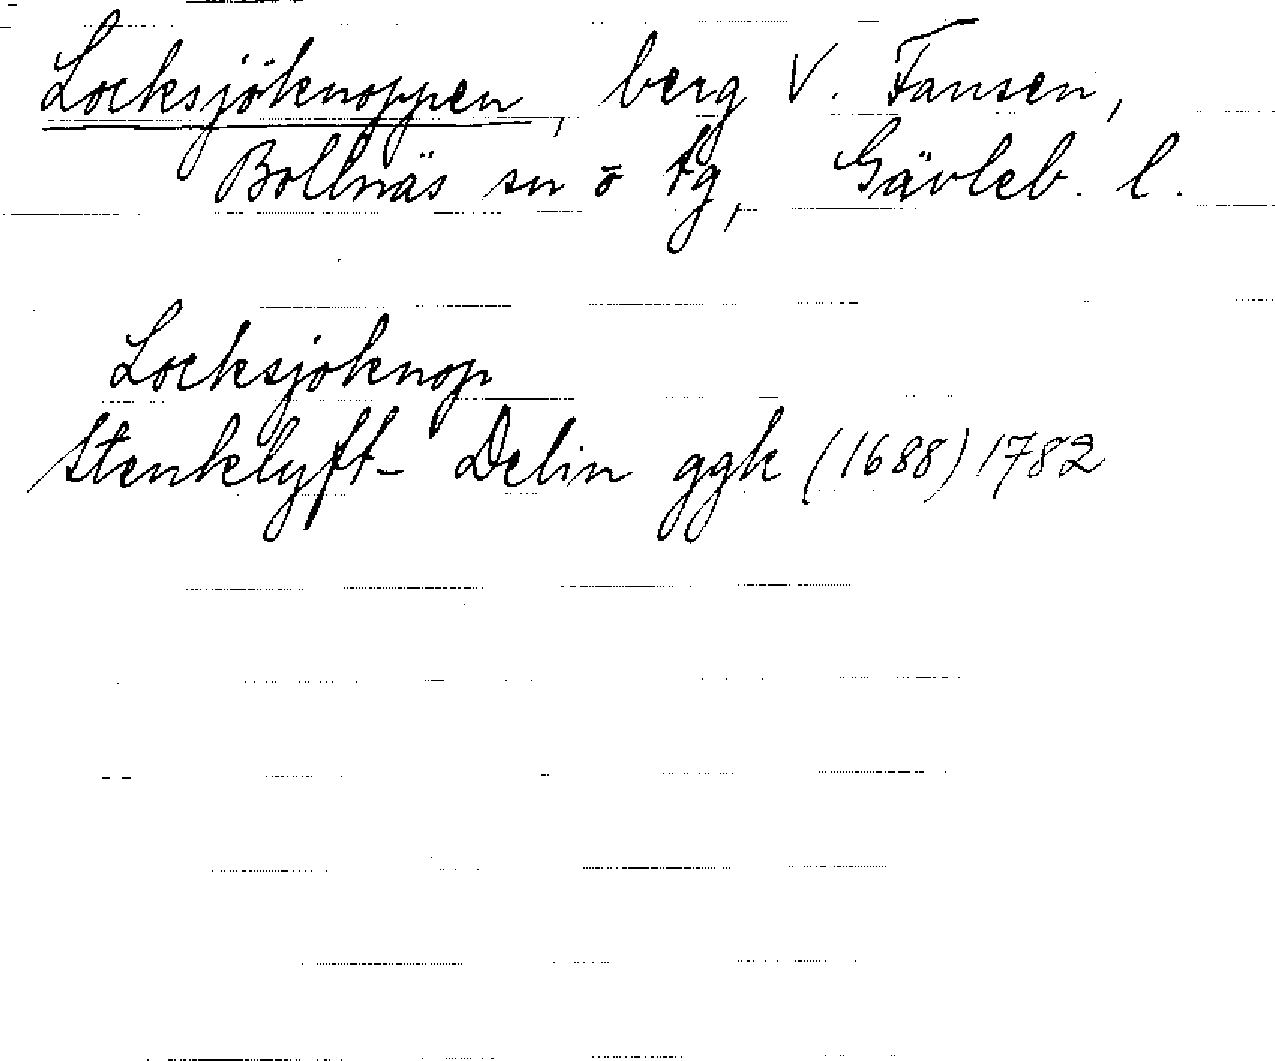 Locksjöknoppen, berg V. Fansen,
Bollnäs sn o tg, Gävleb. l.
Locksjoknop
Stenklyft- Delin ggk (1688) 1782